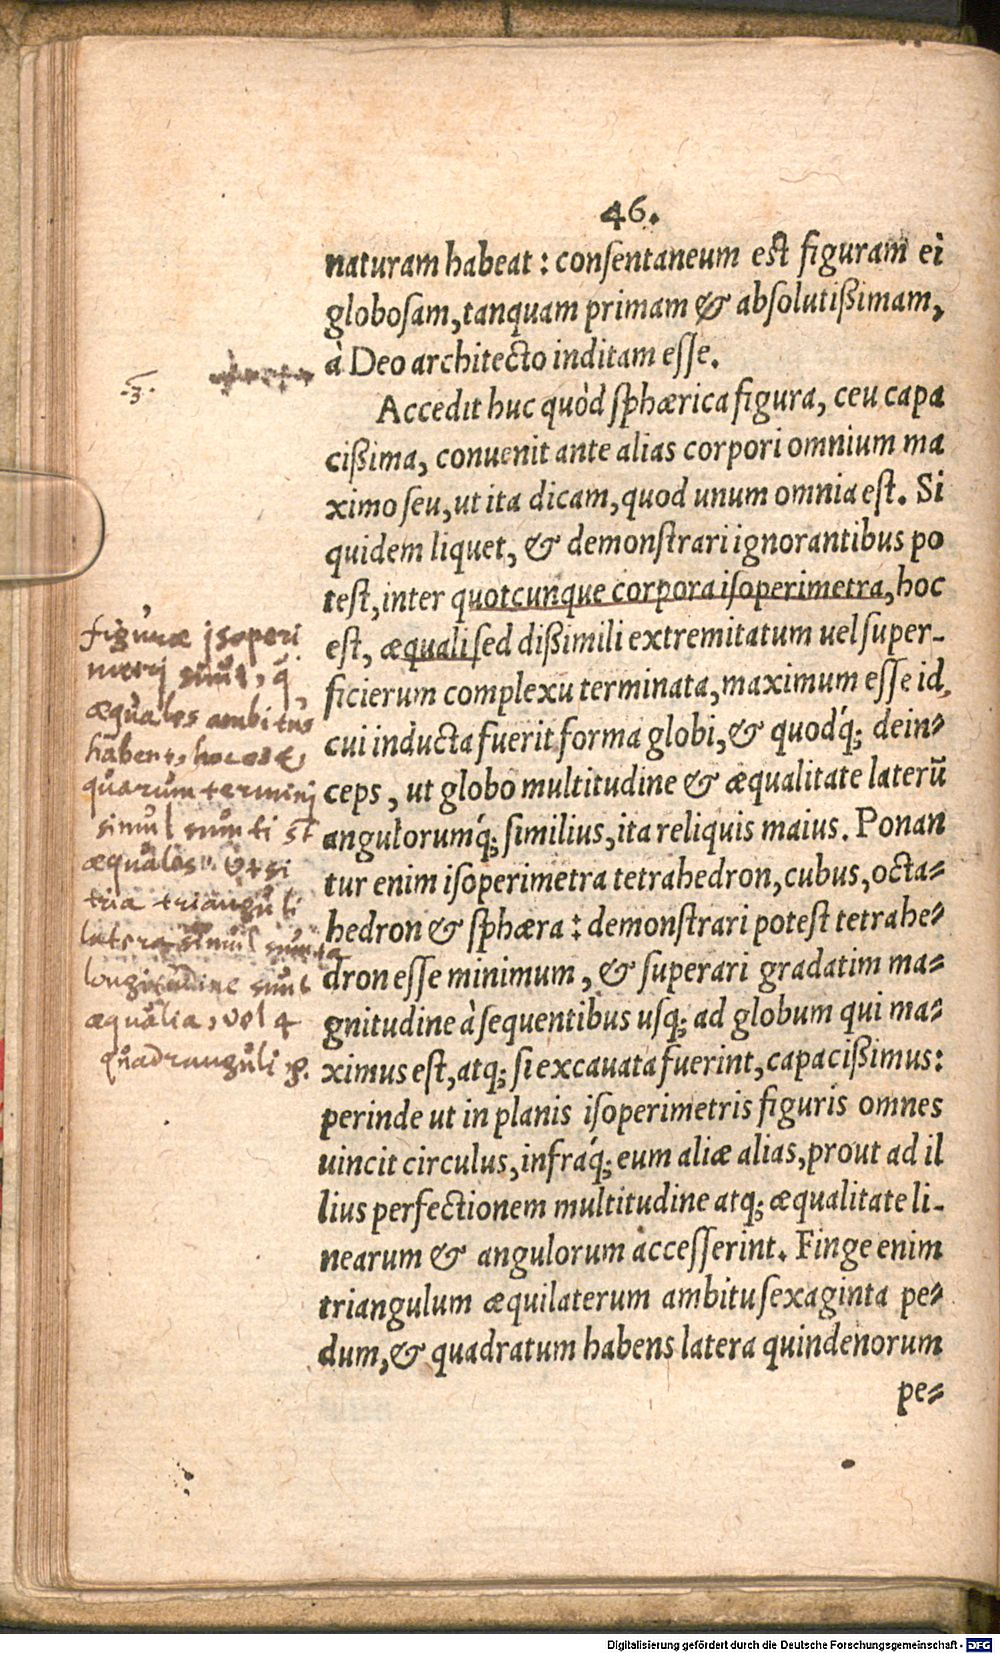 46.
naturam habeat : consentaneum est figuram ei
globosam, tanquam primam & absolutißimam,
à Deo architecto inditam esse.
3.
Accedit huc quòd sphærica figura, ceu capa
cißima, conuenit ante alias corpori omnium ma
ximo seu, ut ita dicam, quod unum omnia est. Si
quidem liquet, & demonstrari ignorantibus po
test, inter quotcunque corpora isoperimetra, hoc
est, æquali sed dißimili extremitatum uel super-
ficierum complexu terminata, maximum esse id,
cui inducta fuerit forma globi, & quodq́; dein-
ceps, ut globo multitudine & æqualitate laterū
angulorumq́; similius, ita reliquis maius. Ponan
tur enim isoperimetra tetrahedron, cubus, octa-
hedron & sphæra : demonstrari potest tetrahe-
dron esse minimum, & superari gradatim ma-
gnitudine à sequentibus usq; ad globum qui ma-
ximus est, atq; si excauata fuerint, capacißimus:
perinde ut in planis isoperimetris figuris omnes
uincit circulus, infraq́; eum aliæ alias, prout ad il
lius perfectionem multitudine atq; æqualitate li-
nearum & angulorum accesserint. Finge enim
triangulum æquilaterum ambitu sexaginta pe-
dum, & quadratum habens latera quindenorum
pe-
figuræ isoperi
metrj sunt, q̄
æquales ambitus
habent, hoc est,
quarum terminj
simul sumti st̄
æquales. Ut si
tria trianguli
latera simul sumta
longitudine sunt
æqualia, vel 4
quadranguli
Digitalisierung gefördert durch die Deutsche Forschungsgemeinschaft - DFG